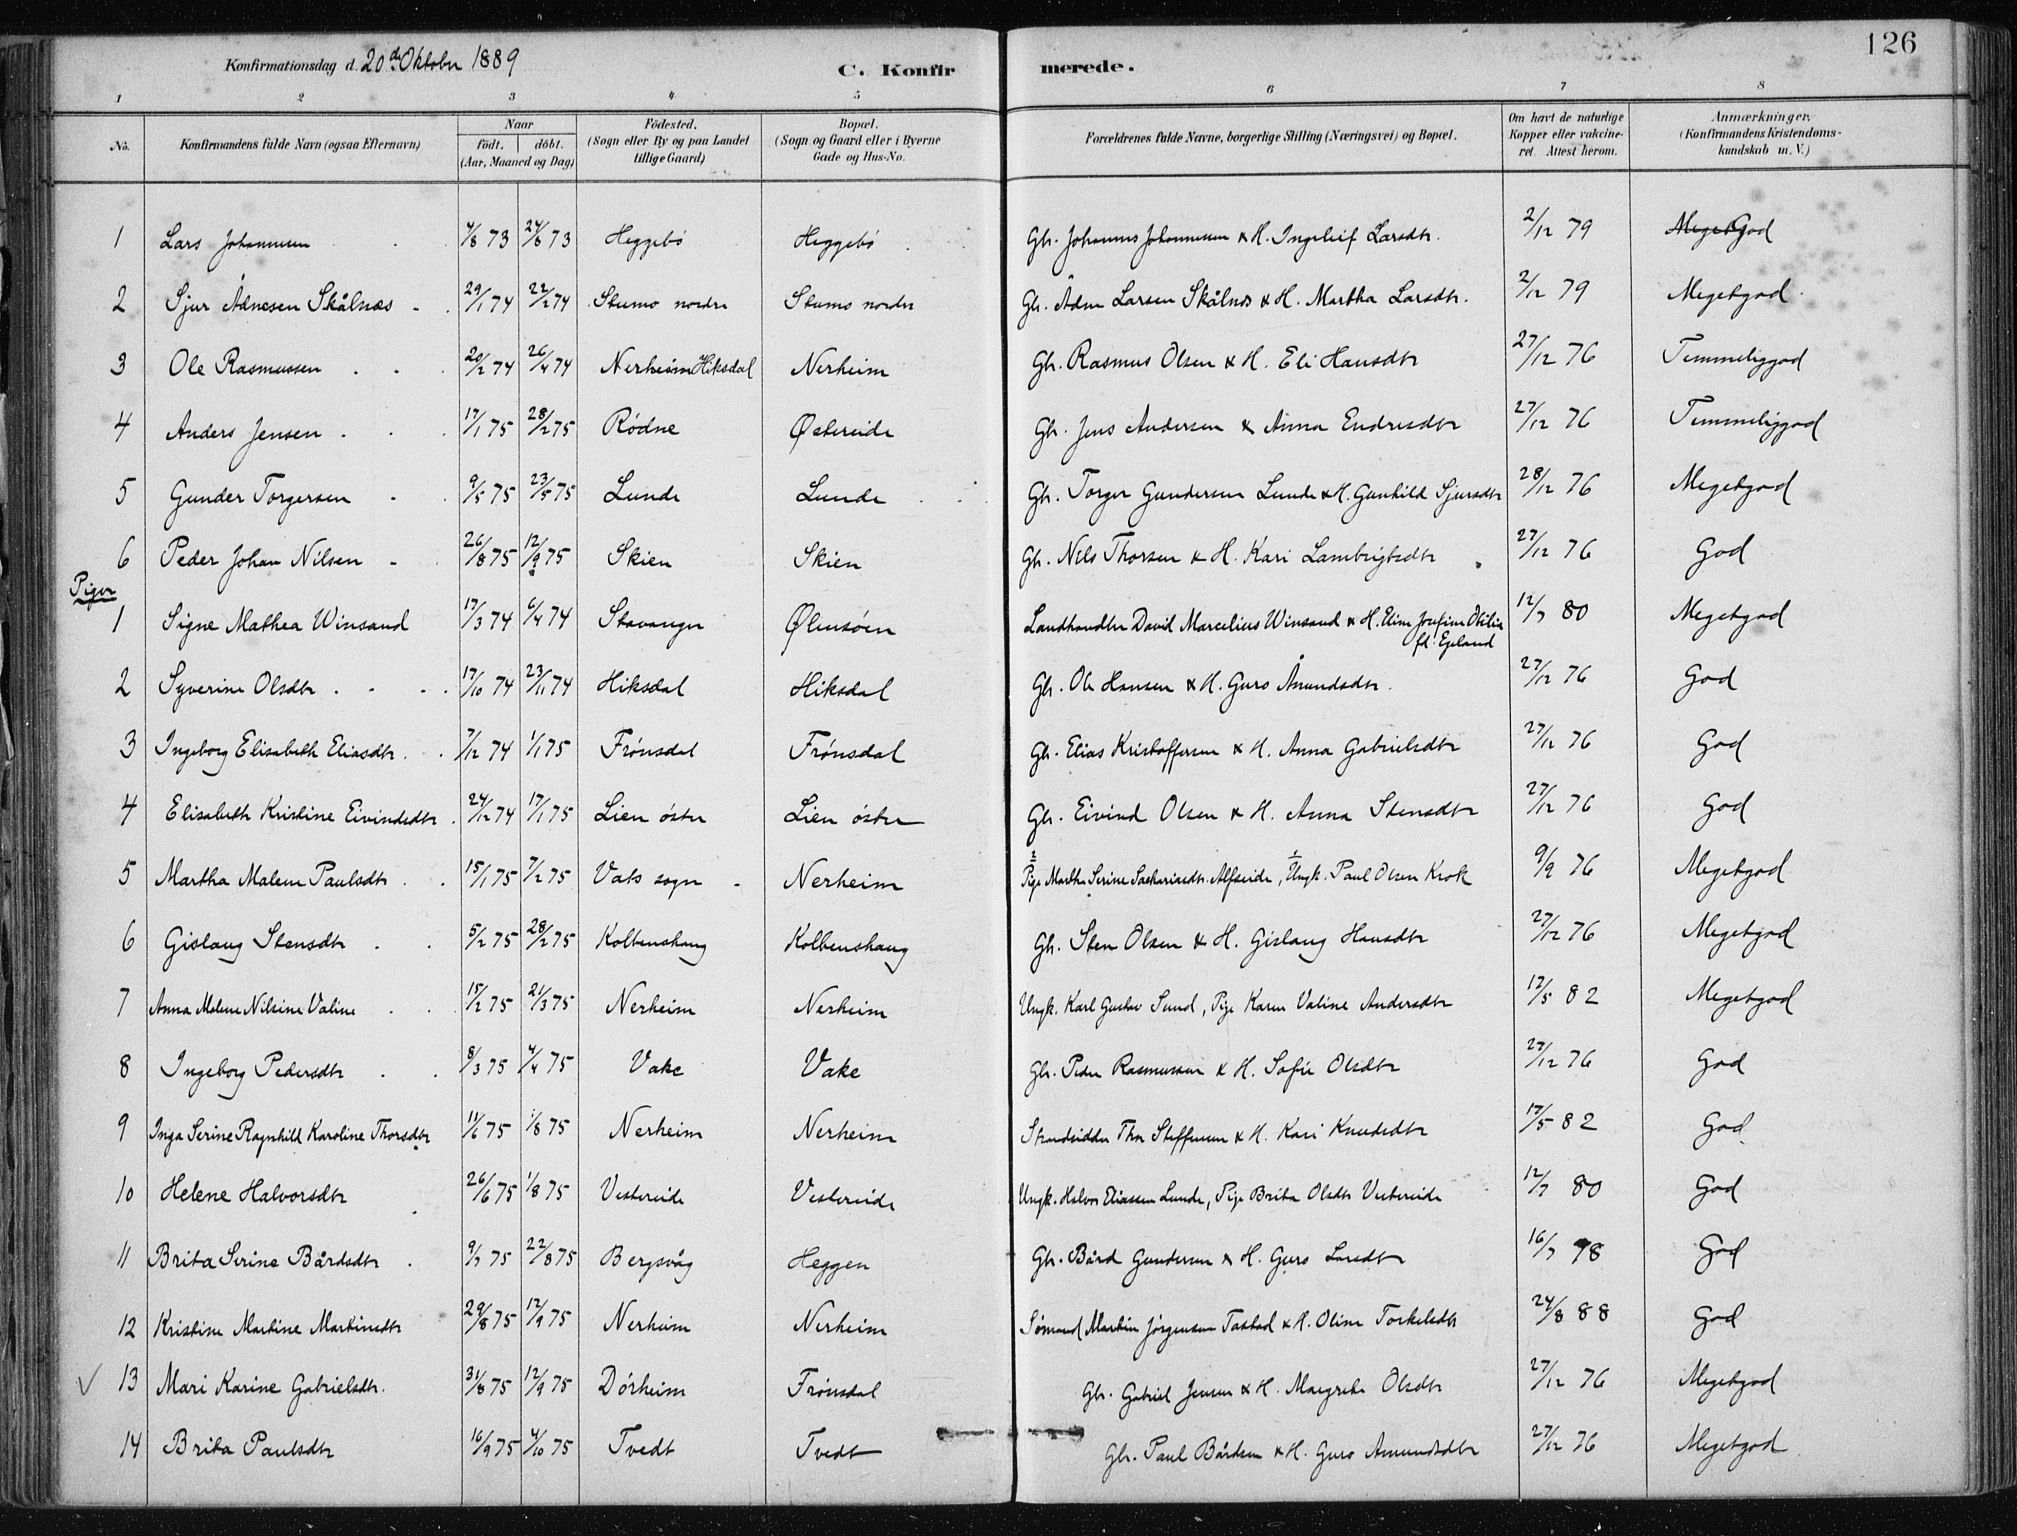 126
Konfirmationsdag d. 20de Oktober 1889
C. Konfirmerede.
1 2 3 4 5 6 7 8
No. Konfirmandens fulde Navn (ogsaa Efternavn) Naar födt. döbt. (Aar, Maaned og Dag) Födested. (Sogn eller By og paa Landet tillige Gaard) Bopæl. (Sogn og Gaard eller i Byerne Gade og Hus-No. Forældrenes fulde Navne, borgerlige Stilling (Næringsvei) og Bopæl. Om havt de naturlige Kopper eller vakcineret. Attest herom. Anmærkninger. (Konfirmandens Kristendomskundskab m. V.)
1 Lars Johannesen 4/8 73 24/8 73 Heggebö Heggebö Gbr. Johannes Johannesen & H. Ingeleif Larsdtr. 2/12 79 Meget God
2 Sjur Ådnesen Skålnæs 29/1 74 22/2 74 Skumo nordre Skumo nordre Gbr. Ådne Larsen Skålnæs & H. Martha Larsdtr. 2/12 79 Megetgod
3 Ole Rasmussen 20/2 74 26/4 74 Nerheim Hiksdal Nerheim Gbr. Rasmus Olsen & H. Eli Hansdtr 27/12 76 Temmeliggod
4 Anders Jensen 17/1 75 28/2 75 Rödne Østereide Gbr. Jens Andersen & Anna Endresdtr 27/12 76 Temmeliggod
5 Gunder Torgersen 9/5 75 23/5 75 Lunde Lunde Gbr. Torger Gundersen Lunde & H. Gunhild Sjursdtr 28/12 76 Megetgod
6 Peder Johan Nilsen 26/8 75 12/9 75 Skien Skien Gbr. Nils Thorsen & H. Kari Lambrigtsdtr 27/12 76 God
Piger
1 Signe Mathea Winsand 17/3 74 6/4 74 Stavanger Ølensöen Landhandler David Marcelius Winsand & H. Eline Josefine Otilia fd. Egeland 12/7 80 Megetgod
2 Syverine Olsdtr 17/10 74 23/11 74 Hiksdal Hiksdal Gbr. Ole Hansen & H. Guro Åmundsdtr. 27/12 76 God
3 Ingeborg Elisabeth Eliasdtr 7/12 74 1/1 75 Frönsdal Frönsdal Gbr. Elias Kristoffersen & H. Anna Gabrielsdtr 27/12 76 God
4 Elisabeth Kristine Eivindsdtr 24/12 74 17/1 75 Lien östre Lien östre Gbr. Eivind Olsen & H. Anna Stensdtr 27/12 76 God
5 Martha Malene Paulsdtr 15/1 75 7/2 75 Vats sogn Nerheim 2 Pige Martha Serine Sachariasdtr. Alfseide, 1 Ungk. Paul Olsen Krok 9/9 76 Megetgod
6 Gislaug Stensdtr 5/2 75 28/2 75 Kolbenshaug Kolbenshaug Gbr. Sten Olsen & H. Gislaug Hansdtr 27/12 76 Megetgod
7 Anna Malene Nilsine Valine 15/2 75 21/3 75 Nerheim Nerheim Ungk. Karl Gustav Sund, Pige Karen Valine Andersdtr 12/5 82 Megetgod
8 Ingeborg Pedersdtr 8/3 75 4/4 75 Vake Vake Gbr. Peder Rasmussen & H. Sofie Olsdtr 27/12 76 God
9 Inga Serine Ragnhild Karoline Thorsdtr 11/6 75 1/8 75 Nerheim Nerheim Strandsidder Thor Steffensen & H. Kari Knudsdtr 17/5 82 God
10 Helene Halvorsdtr 26/6 75 1/8 75 Vestereide Vestereide Ungk. Halvor Eliassen Lunde, Pige Brita Olsdtr Vestereide 12/7 80 God
11 Brita Serine Bårdsdtr 9/7 75 22/8 75 Bergsvåg Heggen Gbr. Bård Gundersen & H. Guro Larsdtr 16/7 78 God
12 Kristine Martine Martinsdtr 29/8 75 12/9 75 Nerheim Nerheim Sömand Martin Jörgensen Tastad & H. Oline Torkelsdtr 24/8 88 God
13 Mari Karine Gabrielsdtr. 31/8 75 12/9 75 Dörheim Frönsdal Gbr. Gabriel Jensen & H. Margrete Olsdtr 27/12 76 Megetgod
14 Brita Paulsdtr 16/9 75 4/10 75 Tvedt Tvedt Gbr. Paul Bårdsen & H. Guro Amundsdtr 27/12 76 Megetgod